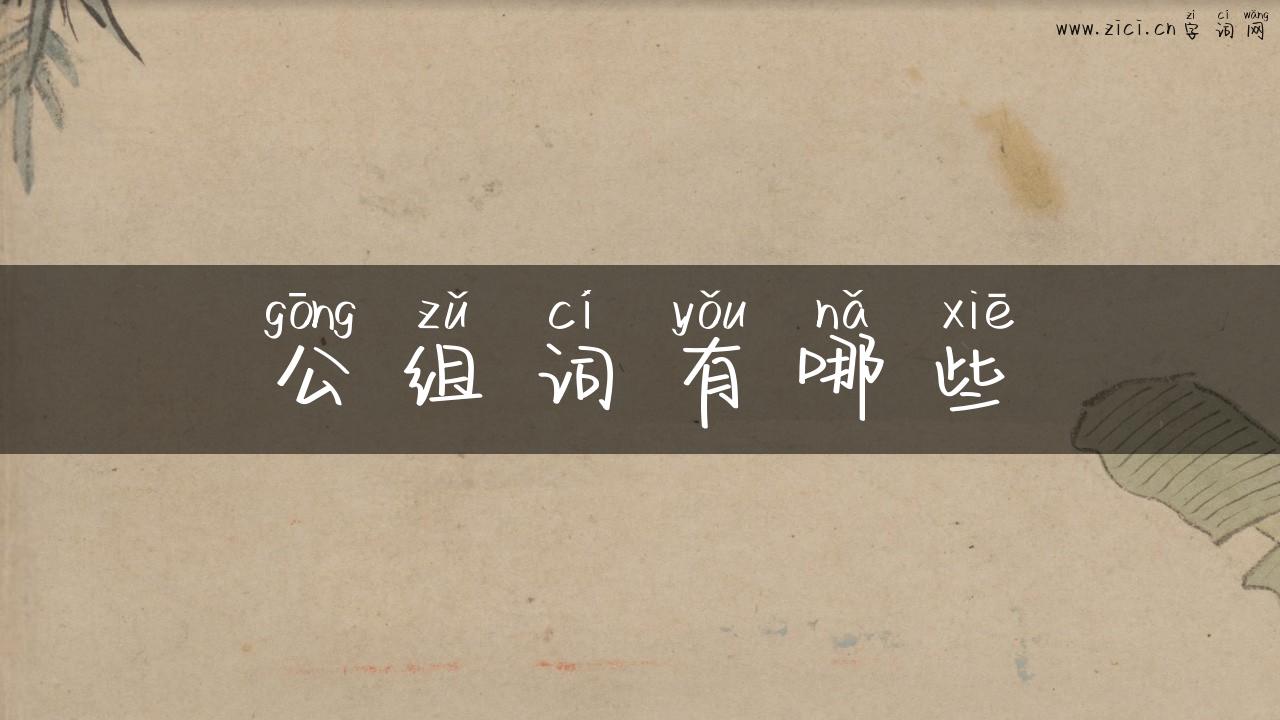 zì cí wǎng
www.zici.cn 字词网
gōng zǔ cí yǒu nǎ xiē
公组词有哪些